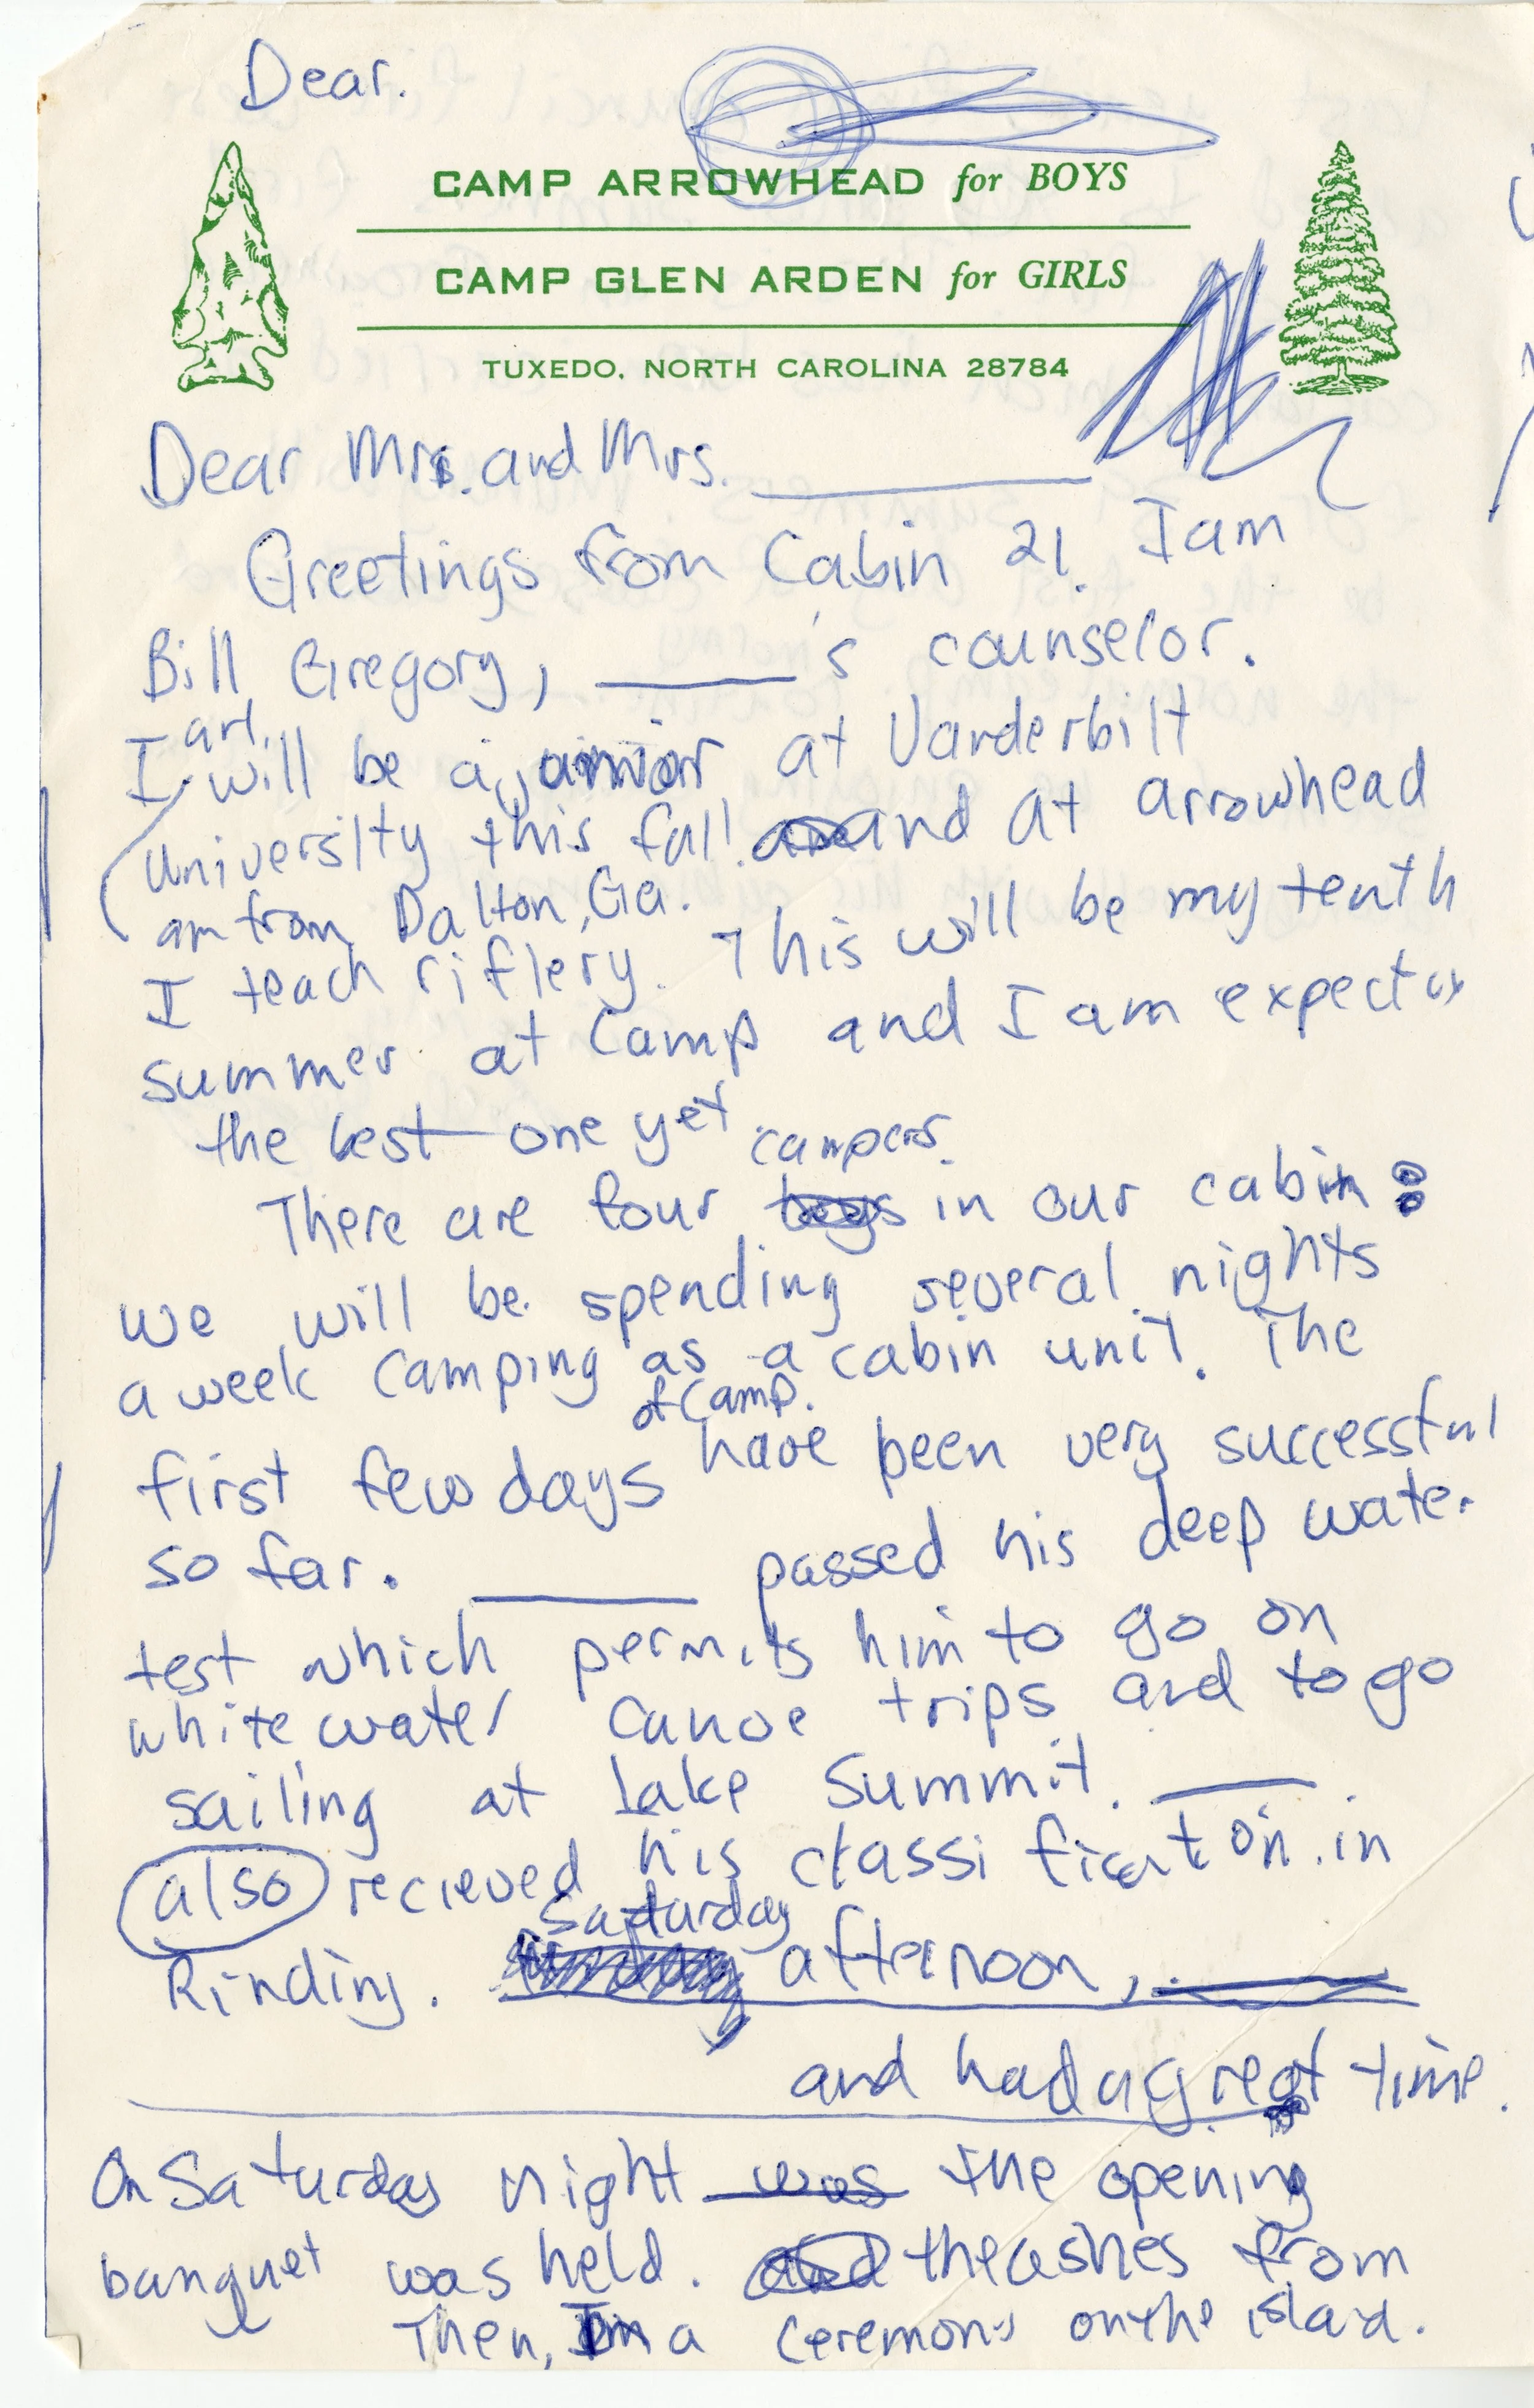 Dear.
CAMP ARROWHEAD for BOYS
CAMP GLEN ARDEN for GIRLS
TUXEDO, NORTH CAROLINA 28784
Dear Mr. and Mrs. ______
Greetings from Cabin 21. I am
Bill Gregory, ______'s counselor.
I will be a junior at Vanderbilt
University this fall and at arrowhead
am from Dalton, Ga.
I teach riflery. This will be my tenth
summer at Camp and I am
the best one yet
campers.
There are four boys in our cabin
we will be spending several nights
a week camping as a cabin unit. The
of Camp.
first few days have been very successful
so far. ______ passed his deep water
test which permits him to go on
white water canoe trips and to go
sailing at Lake Summit. ______
also recieved his classification in
Saturday
Rinding. afternoon, ______
______ and had a great time.
On Saturday night was the opening
banquet was held. and the ashes from
Then, In a ceremony on the island.